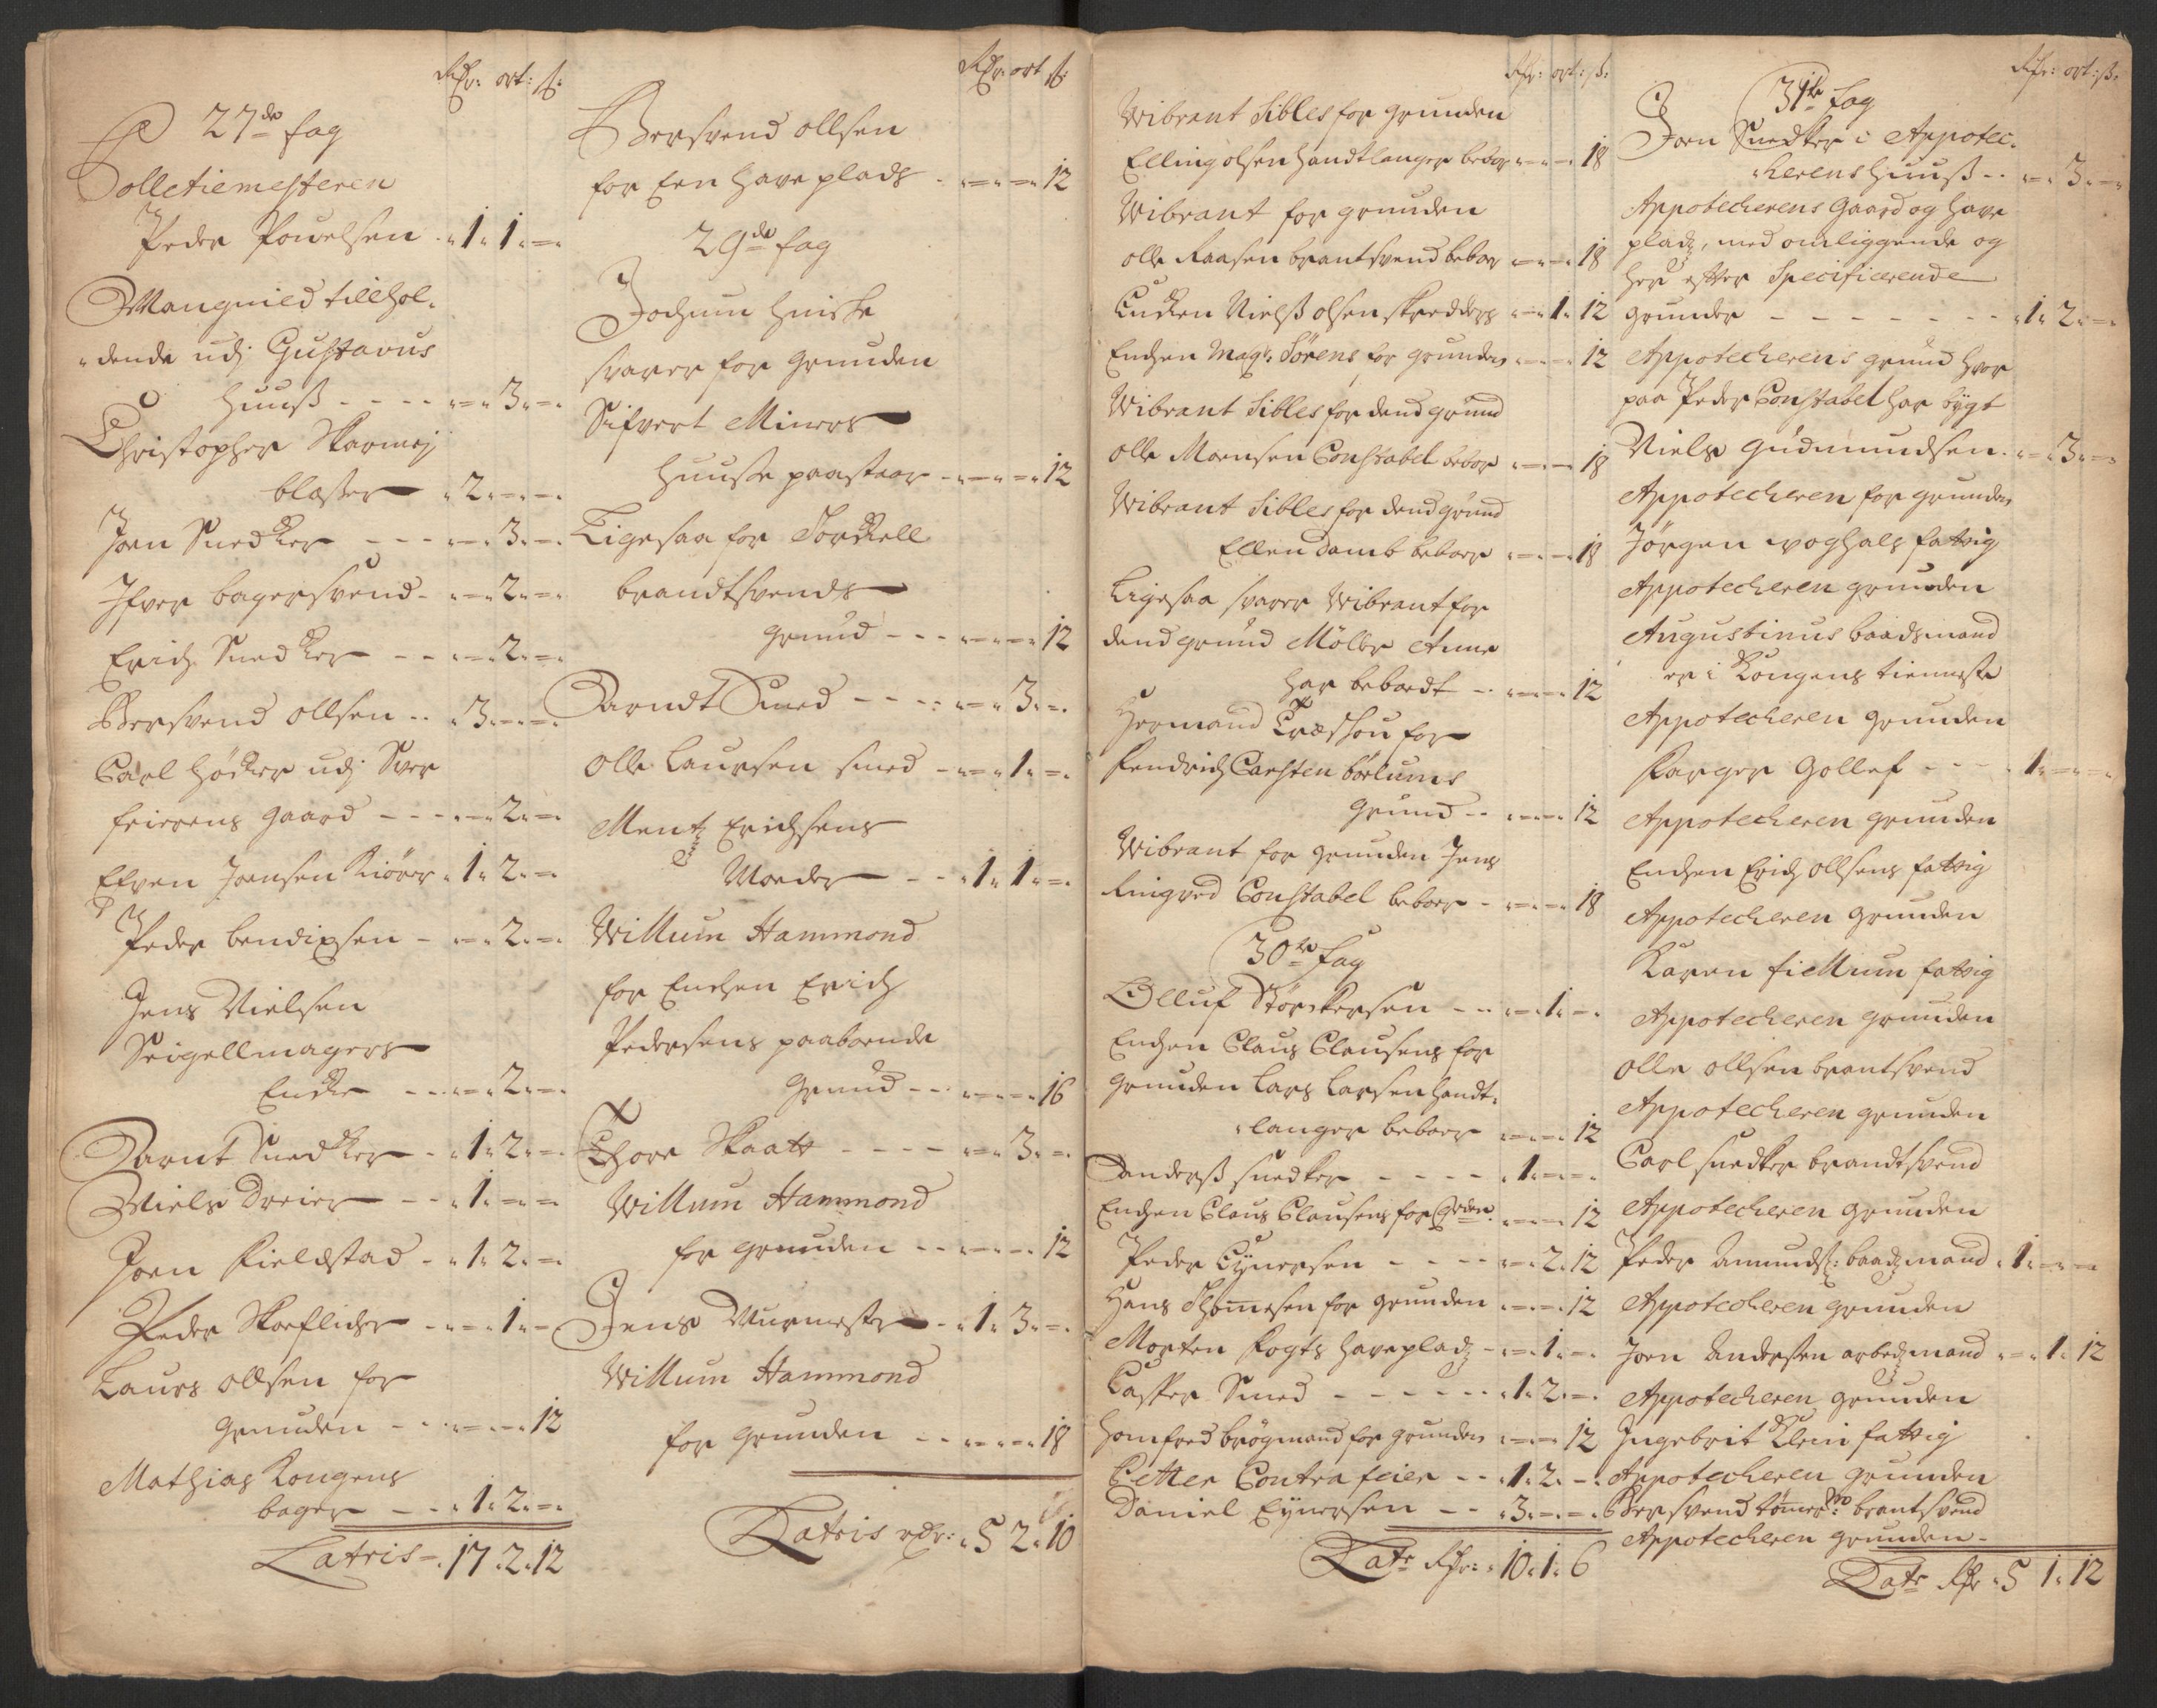 Rdr: ort: ß:
27de fag
Polletiemesteren
Peder Powelsen - 1 1 -
Mangnild tillhol-
dende udj Gustavus
huuß - - - - 3 -
Christopher Skarmej
blaßer 2 - -
Joen Snedker - - - 3 -
Ifver bagersvend - - 2 -
Erich Snedker - - - 2 -
Bersvend ollsen - - 3 - -
Carl höcker udj Svar
feierens gaard - - - 2 -
Efven Joensen Kiörer 1 2 -
Peder bendixsen - - 2 -
Jens Nielsen
Seigellmagers
Encke - - - 2 -
Barnt Snedker - 1 2 -
Niels Dreier - - 1 - -
Joen Fieldstad - 1 2 -
Peder Skoeflicher - - 1 -
Laurs ollsen for
grunden - - - - 12
Mathias Kongens
bager - - 1 2 -
Lateris - 17 2 12
Rdr: ort ß:
Bersvend ollsen
for Een haveplads - - - 12
29de fag
Jochum Hinske
svarer for grunden
Sifvert Miners
huuße paastaar - - - 12
Ligesaa for Torckell
brandtsvends
grund - - - - - 12
Barndt Smed - - - 3 -
Olle Laursen smed - - 1 -
Mentz Erichsens
Moeder - - 1 1 -
Willum Hammond
for Enchen Erich
Pedersens paaboende
grund - - - - 16
Thore Skaatt - - - - 3 -
Willum Hammond
for grunden - - - - 12
Jens Murmester - 1 3 -
Willum Hammond
for grunden - - - - 18
Lateris rdr: 5 2 10
Rdr: ort: ß:
Wibrant Sibles for grunden
Elling olsen handtlanger beboer - - 18
Wibrant for grunden
olle Raasen brantsvend beboer - - 18
Encken Nielß olsen skredders - 1 12
Enchen Magr: Sörens for grunden - - 12
Wibrant Sibles for dend grund
olle Monsen Constabel beboer - - 18
Wibrant Sibles for dend grund
Ellen damb beboer - - 18
Ligesaa svarer Wibrant for
dend grund Möller Anne
har beboedt - - - 12
Hermand Træshou for
Fendrich Carsten börlums
grund - - - - 12
Wibrant for grunden Jens
Ringved Constabel beboer - - - 18
30te fag
Olluf Störckersen - - - 1 -
Enchen Claus Clausens for
grunden Lars Larsen handt-
langer beboer - - 12
Anderß snedker - - - - 1 - -
Enchen Claus Clausens for Grden - - 12
Peder Eÿnersen - - - - 2 12
Hans Thomesen for grunden - - 12
Morten Fogts havepladz - - 1 -
Casper Smed - - - - - 1 2 -
Homfred brögmand for grunden - - 12
Petter Contrafeier - - 1 2 -
Daniel Eÿnersen - - 3 - -
Latr Rdr: 10 1 6
Rdr: ort: ß:
31te fag
Joen Snedker i Appotec-
kerens huuß - - - 3 -
Appotecherens gaard og have
pladz, med omliggende og
her efter Specificerende
grunder - - - - - - - 1 2 -
Appotecherens grund hvor
paa Peder Constabel har bÿgt
Niels gudmundsen - - 3 -
Appotecheren for grunden
Jörgen woghals fattig
Appotecheren grunden
Augustinus baadsmand
er i Kongens tienneste
Appotecheren grunden
Farger gollef - - - - 1 - -
Appotecheren grunden
Enchen Erich ollsens fattig
Appotecheren grunden
Karen fiellrum fattig
Appotecheren grunden
olle ollsen brantsvend
Appotecheren grunden
Carl snedker brandtsvend
Appotecheren grunden
Peder Amundß: baadzmand 1 - -
Appotecheren grunden
Joen Andersen arbedzmand - 1 12
Appotecheren grunden
Ingebrit Klein fattig
Appotecheren grunden
Bersvend tömerm: brantsvend
Appotecheren grunden -
Latr Rdr 5 1 12